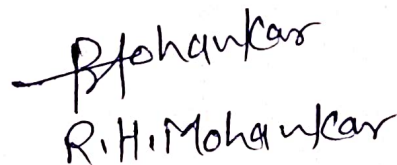 RHohankar
R.H.Mohankar